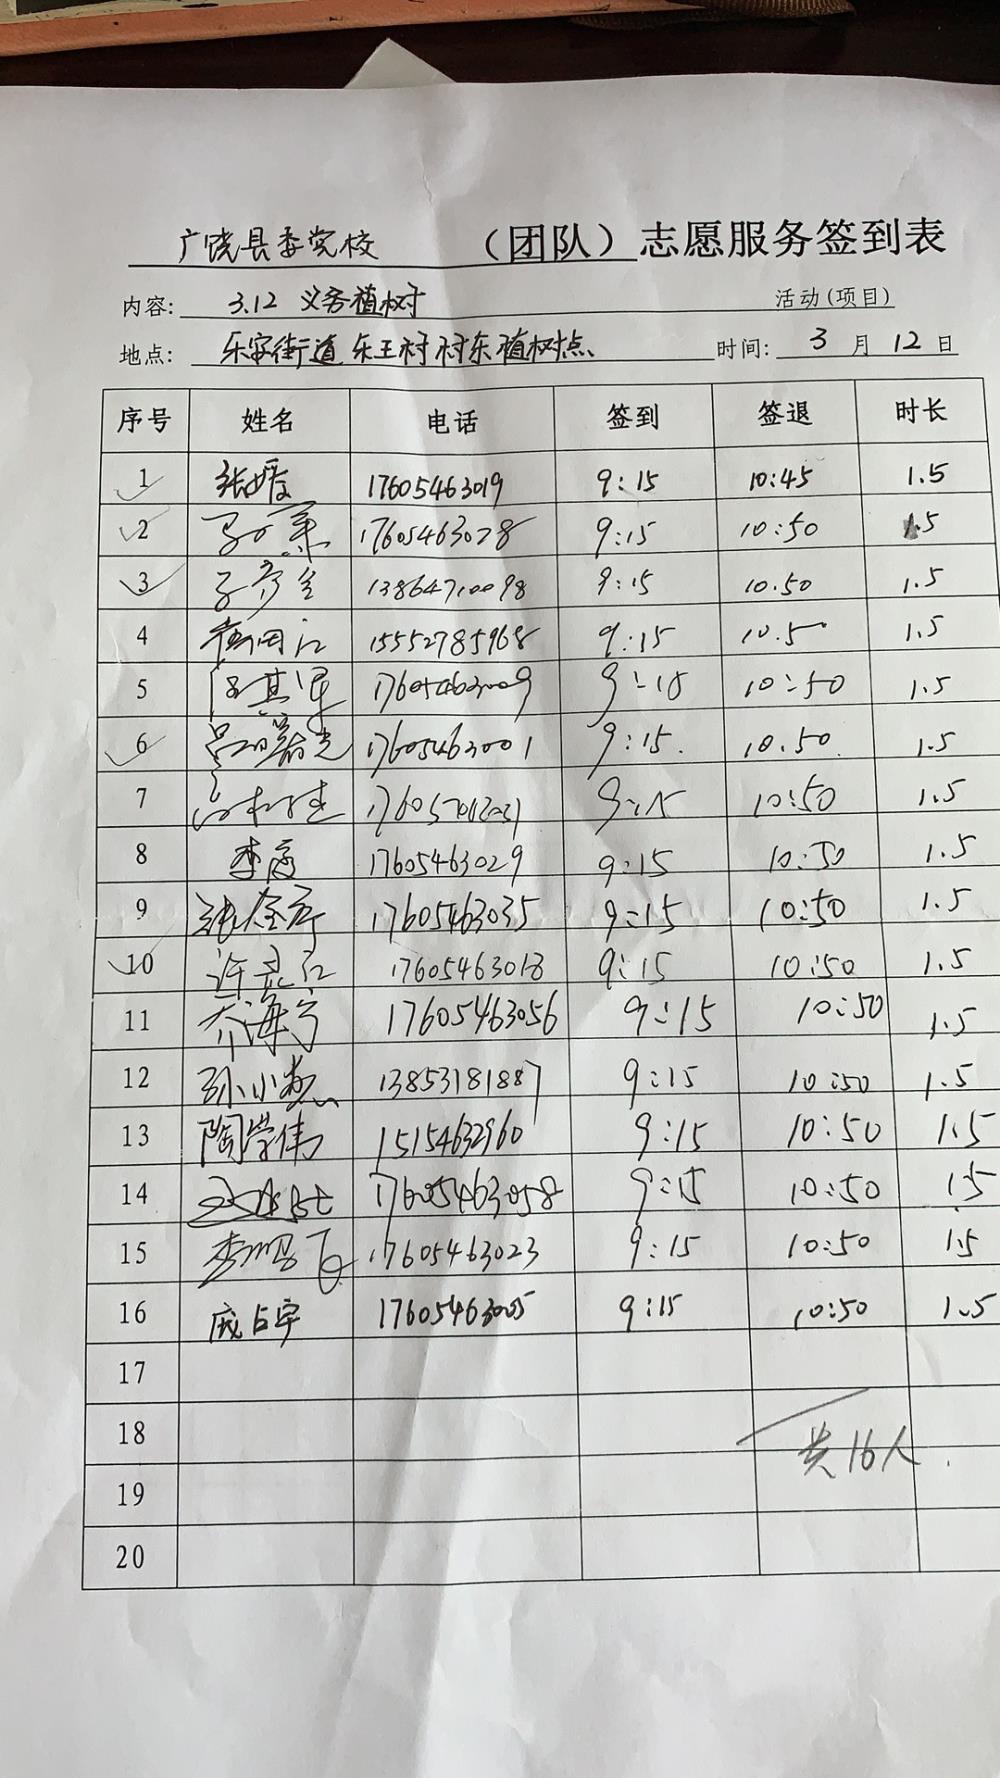 广饶县委党校 （团队）志愿服务签到表
内容: 3.12 义务植树 活动(项目)
地点: 乐安街道 东王村村东植树点 时间: 3 月 12 日
序号 姓名 电话 签到 签退 时长
1 张媛 17605463019 9:15 10:45 1.5
2 17605463028 9:15 10:50 1.5
3 13864710098 9:15 10.50 1.5
4 15552785968 9:15 10.50 1.5
5 17605463009 9:15 10:50 1.5
6 17605463001 9:15. 10.50. 1.5
7 9:15 10:50 1.5
8 李庆 17605463029 9:15 10:50 1.5
9 17605463035 9:15 10:50 1.5
10 17605463018 9:15 10:50 1.5
11 乔海宁 17605463056 9:15 10:50 1.5
12 孙小 13853181887 9:15 10:50 1.5
13 陶学伟 15154632960 9:15 10:50 1.5
14 17605463058 9:15 10:50 1.5
15 李鹏飞 17605463023 9:15 10:50 1.5
16 戚占宇 17605463005 9:15 10:50 1.5
17
18 共16人.
19
20